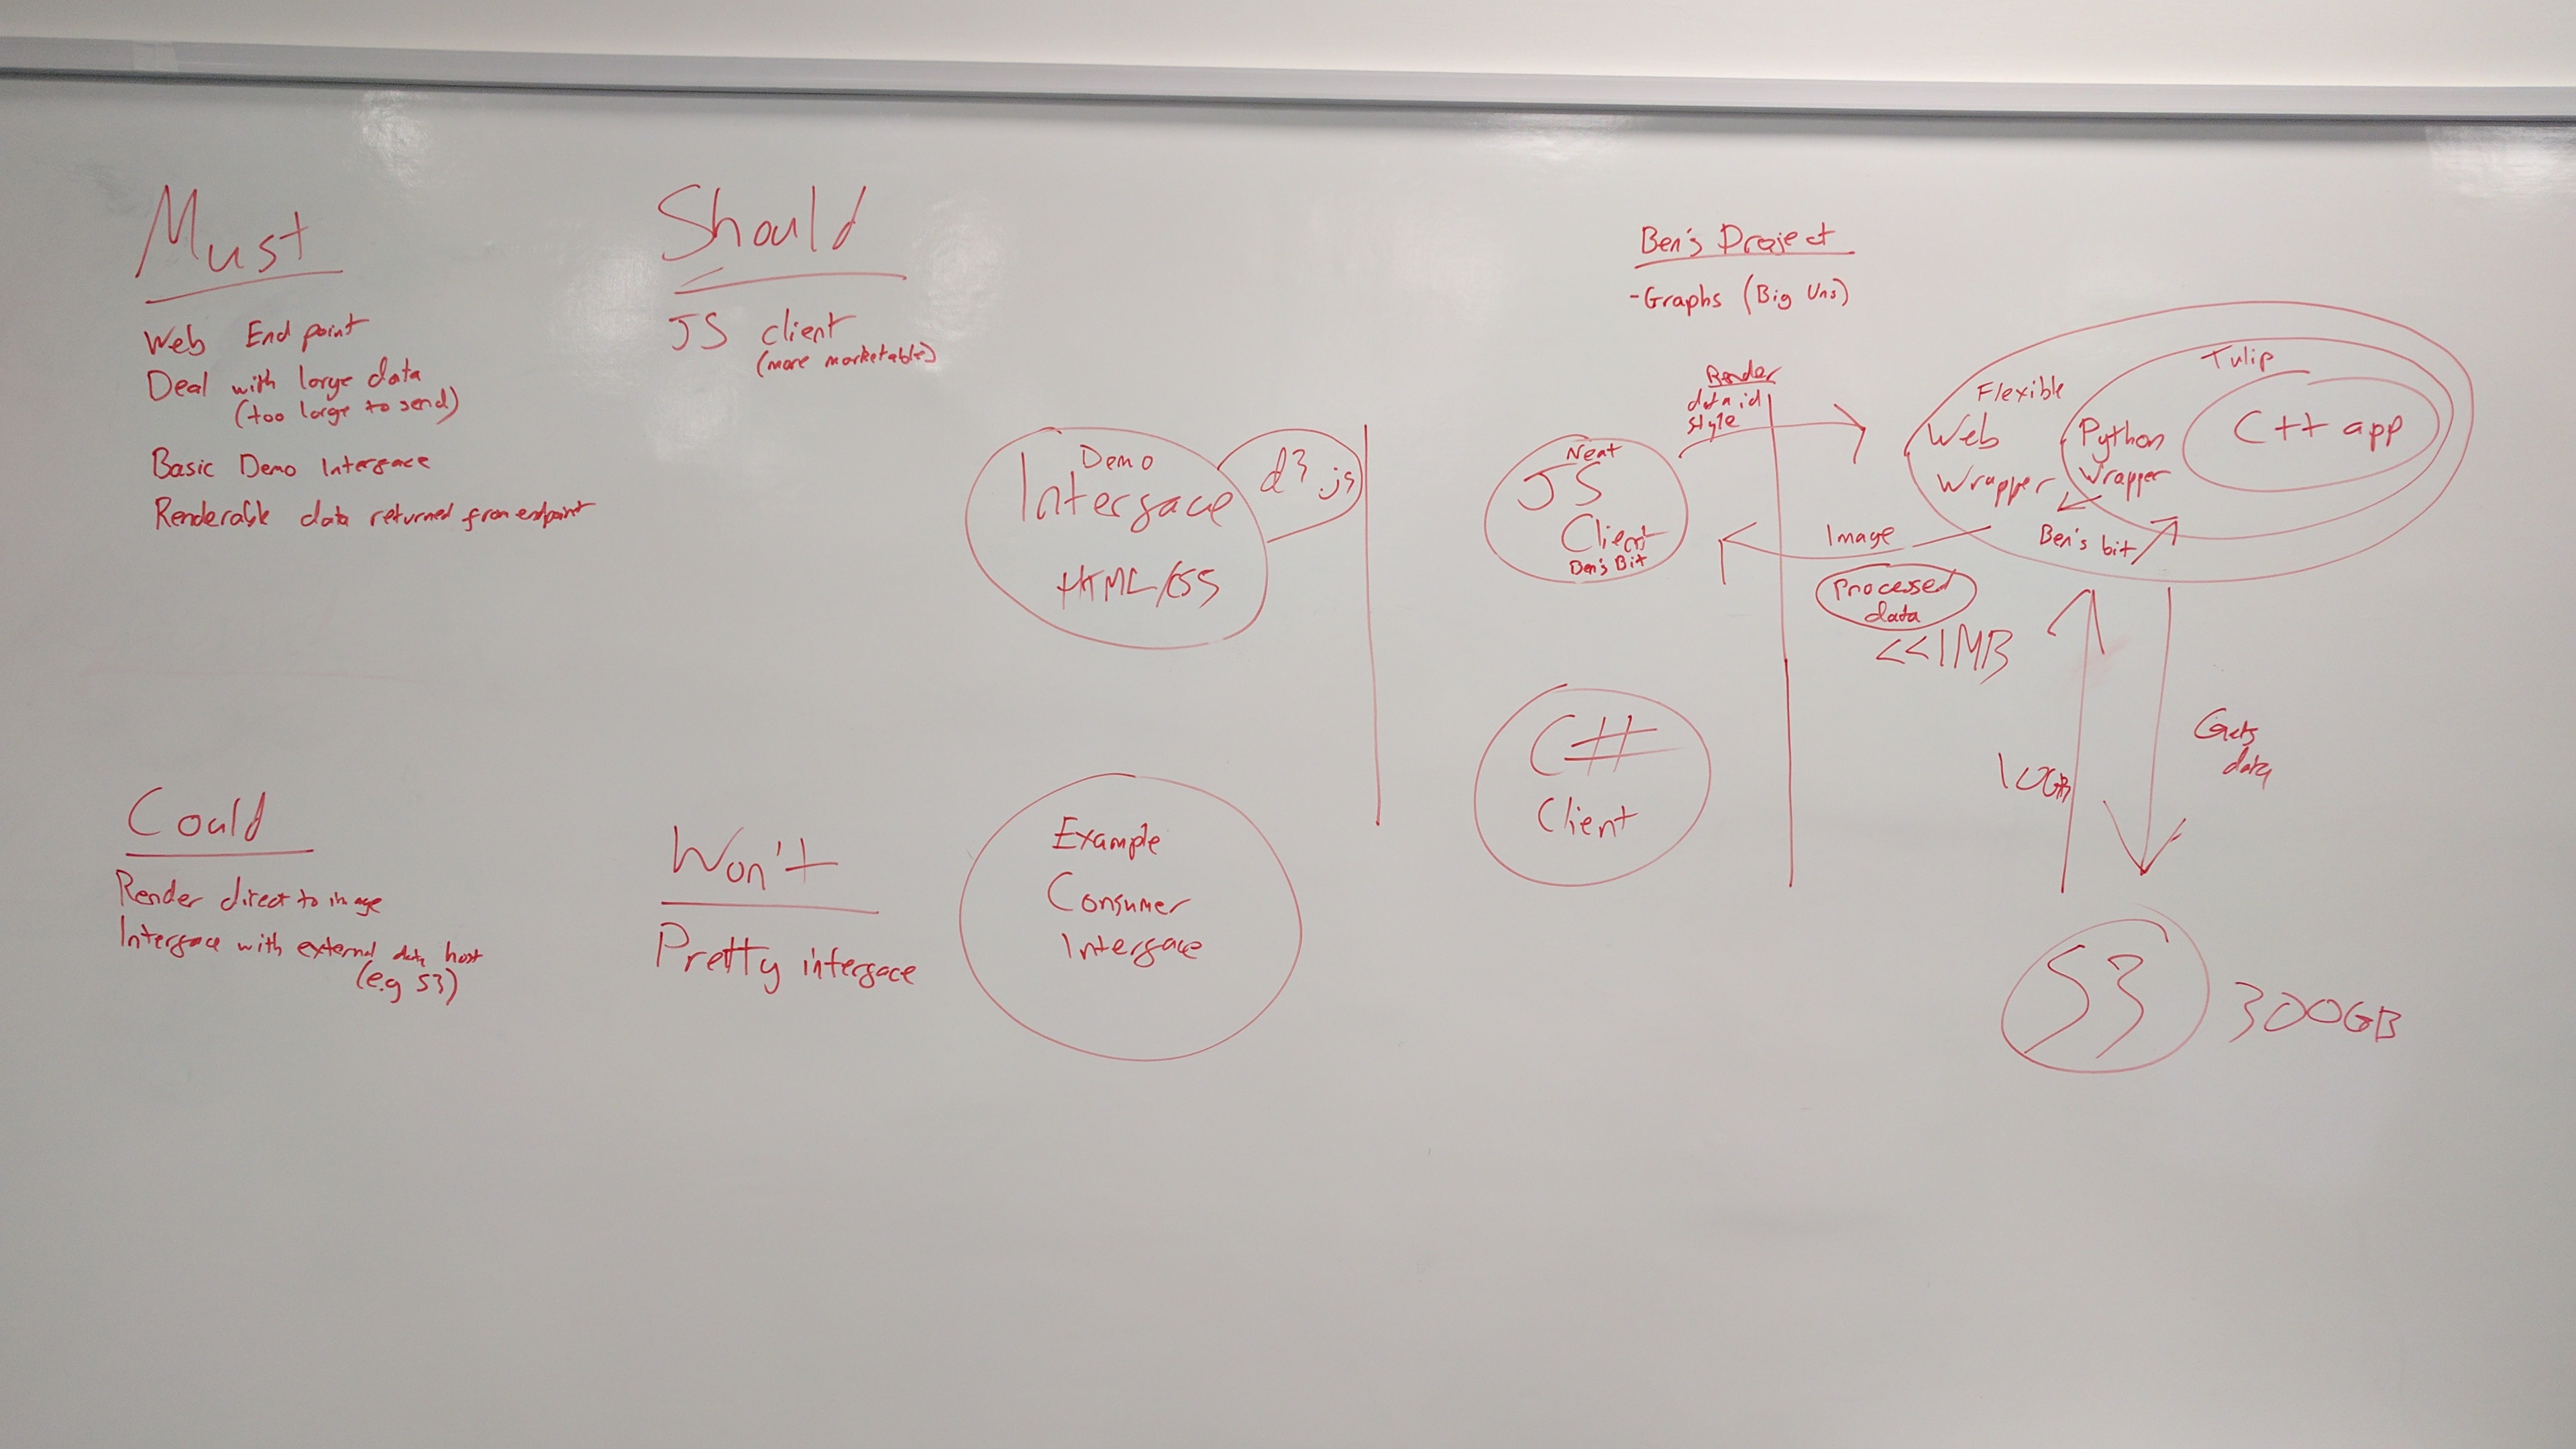 Must
Web End point
Deal with large data
(too large to send)
Basic Demo Interface
Renderable data returned from endpoint
Should
JS client
(more marketable)
Could
Render direct to image
Interface with external data host
(e.g S3)
Won't
Pretty interface
Demo
Interface
HTML/CSS
d3.js
Example
Consumer
Interface
Ben's Project
- Graphs (Big Uns)
Render
data id
style
Neat
JS
Client
Ben's Bit
C#
Client
Image
Processed
data
<<1MB
Flexible
Web
Wrapper
Tulip
Python
Wrapper
C++ app
Ben's bit
10GB
Gets
data
S3
300GB